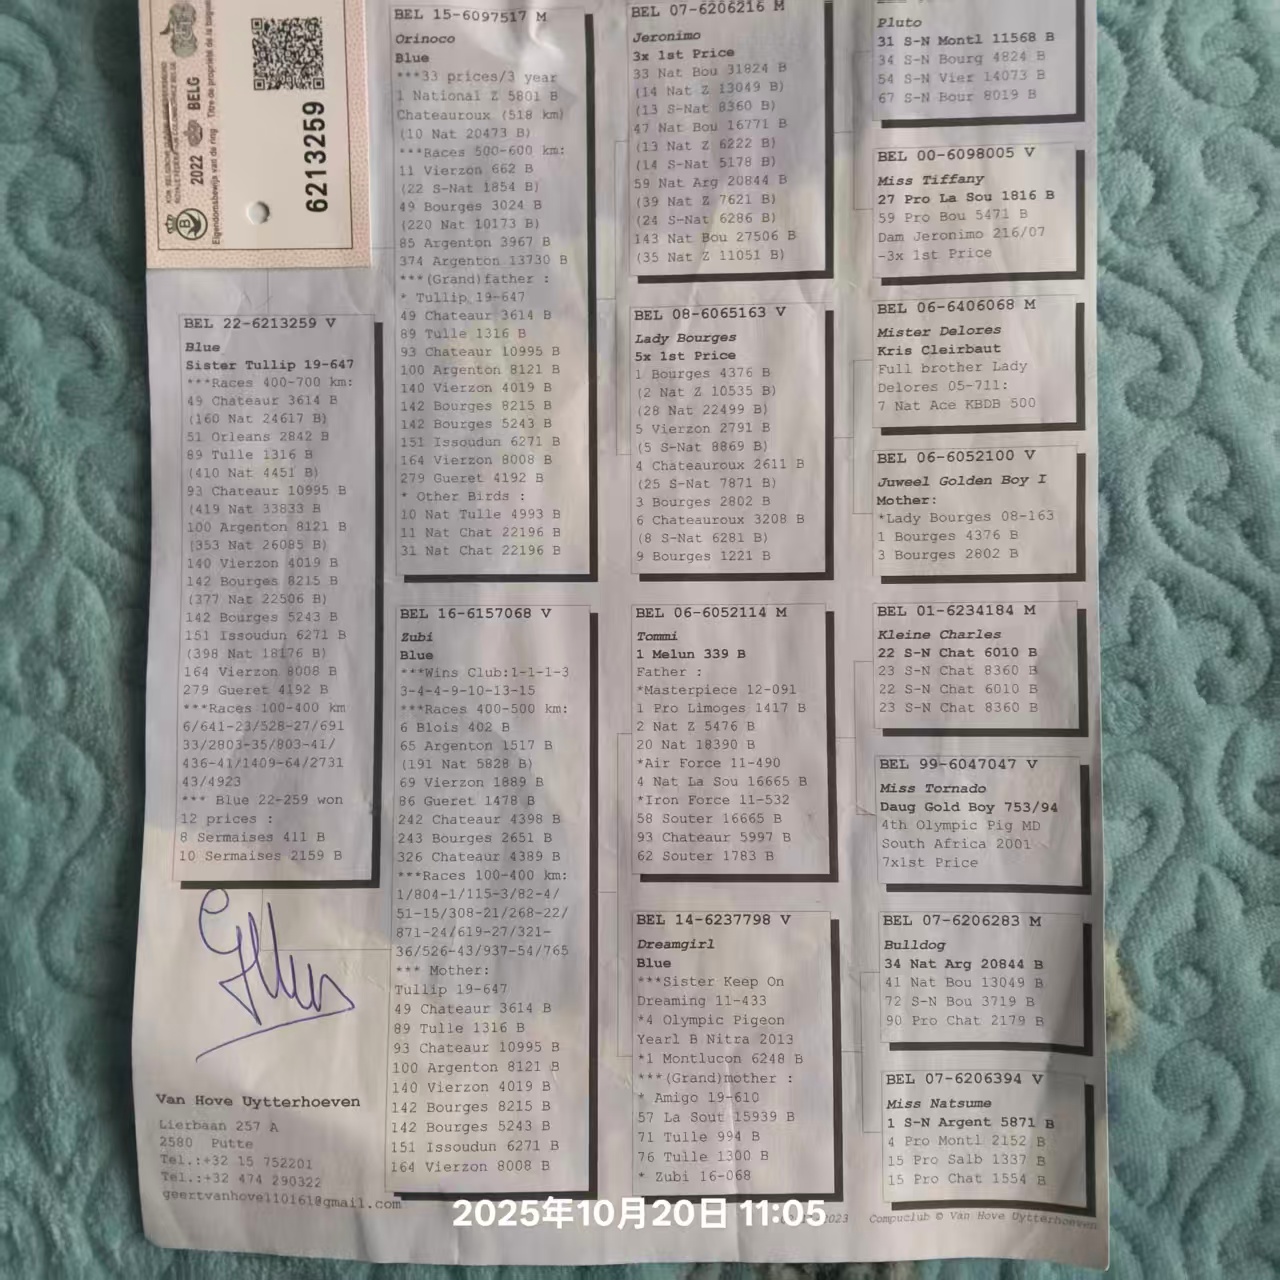 KON. BELGISCHE DUIVENLIEFHEBBERSBOND
ROYALE FEDERATION COLOMBOPHILE BELGE
2022 BELG
Eigendomsbewijs van de ring Titre de propriété de la bague
6213259
BEL 22-6213259 V
Blue
Sister Tullip 19-647
***Races 400-700 km:
49 Chateaur 3614 B
(160 Nat 24617 B)
51 Orleans 2842 B
89 Tulle 1316 B
(410 Nat 4451 B)
93 Chateaur 10995 B
(419 Nat 33833 B
100 Argenton 8121 B
(353 Nat 26085 B)
140 Vierzon 4019 B
142 Bourges 8215 B
(377 Nat 22506 B)
142 Bourges 5243 B
151 Issoudun 6271 B
(398 Nat 18176 B)
164 Vierzon 8008 B
279 Gueret 4192 B
***Races 100-400 km
6/641-23/528-27/691
33/2803-35/803-41/
436-41/1409-64/2731
43/4923
*** Blue 22-259 won
12 prices :
8 Sermaises 411 B
10 Sermaises 2159 B
Van Hove Uytterhoeven
Lierbaan 257 A
2580 Putte
Tel.:+32 15 752201
Tel.:+32 474 290322
geertvanhove110161@gmail.com
BEL 15-6097517 M
Orinoco
Blue
***33 prices/3 year
1 National Z 5801 B
Chateauroux (518 km)
(10 Nat 20473 B)
***Races 500-600 km:
11 Vierzon 662 B
(22 S-Nat 1854 B)
49 Bourges 3024 B
(220 Nat 10173 B)
85 Argenton 3967 B
374 Argenton 13730 B
***(Grand)father :
* Tullip 19-647
49 Chateaur 3614 B
89 Tulle 1316 B
93 Chateaur 10995 B
100 Argenton 8121 B
140 Vierzon 4019 B
142 Bourges 8215 B
142 Bourges 5243 B
151 Issoudun 6271 B
164 Vierzon 8008 B
279 Gueret 4192 B
* Other Birds :
10 Nat Tulle 4993 B
11 Nat Chat 22196 B
31 Nat Chat 22196 B
BEL 16-6157068 V
Zubi
Blue
***Wins Club:1-1-1-3
3-4-4-9-10-13-15
***Races 400-500 km:
6 Blois 402 B
65 Argenton 1517 B
(191 Nat 5828 B)
69 Vierzon 1889 B
86 Gueret 1478 B
242 Chateaur 4398 B
243 Bourges 2651 B
326 Chateaur 4389 B
***Races 100-400 km:
1/804-1/115-3/82-4/
51-15/308-21/268-22/
871-24/619-27/321-
36/526-43/937-54/765
*** Mother:
Tullip 19-647
49 Chateaur 3614 B
89 Tulle 1316 B
93 Chateaur 10995 B
100 Argenton 8121 B
140 Vierzon 4019 B
142 Bourges 8215 B
142 Bourges 5243 B
151 Issoudun 6271 B
164 Vierzon 8008 B
BEL 07-6206216 M
Jeronimo
3x 1st Price
33 Nat Bou 31824 B
(14 Nat Z 13049 B)
(13 S-Nat 8360 B)
47 Nat Bou 16771 B
(13 Nat Z 6222 B)
(14 S-Nat 5178 B)
59 Nat Arg 20844 B
(39 Nat Z 7621 B)
(24 S-Nat 6286 B)
143 Nat Bou 27506 B
(35 Nat Z 11051 B)
BEL 08-6065163 V
Lady Bourges
5x 1st Price
1 Bourges 4376 B
(2 Nat Z 10535 B)
(28 Nat 22499 B)
5 Vierzon 2791 B
(5 S-Nat 8869 B)
4 Chateauroux 2611 B
(25 S-Nat 7871 B)
3 Bourges 2802 B
6 Chateauroux 3208 B
(8 S-Nat 6281 B)
9 Bourges 1221 B
BEL 06-6052114 M
Tommi
1 Melun 339 B
Father :
*Masterpiece 12-091
1 Pro Limoges 1417 B
2 Nat Z 5476 B
20 Nat 18390 B
*Air Force 11-490
4 Nat La Sou 16665 B
*Iron Force 11-532
58 Souter 16665 B
93 Chateaur 5997 B
62 Souter 1783 B
BEL 14-6237798 V
Dreamgirl
Blue
***Sister Keep On
Dreaming 11-433
*4 Olympic Pigeon
Yearl B Nitra 2013
*1 Montlucon 6248 B
***(Grand)mother :
* Amigo 19-610
57 La Sout 15939 B
71 Tulle 994 B
76 Tulle 1300 B
* Zubi 16-068
Pluto
31 S-N Montl 11568 B
34 S-N Bourg 4824 B
54 S-N Vier 14073 B
67 S-N Bour 8019 B
BEL 00-6098005 V
Miss Tiffany
27 Pro La Sou 1816 B
59 Pro Bou 5471 B
Dam Jeronimo 216/07
-3x 1st Price
BEL 06-6406068 M
Mister Delores
Kris Cleirbaut
Full brother Lady
Delores 05-711:
7 Nat Ace KBDB 500
BEL 06-6052100 V
Juweel Golden Boy I
Mother:
*Lady Bourges 08-163
1 Bourges 4376 B
3 Bourges 2802 B
BEL 01-6234184 M
Kleine Charles
22 S-N Chat 6010 B
23 S-N Chat 8360 B
22 S-N Chat 6010 B
23 S-N Chat 8360 B
BEL 99-6047047 V
Miss Tornado
Daug Gold Boy 753/94
4th Olympic Pig MD
South Africa 2001
7x1st Price
BEL 07-6206283 M
Bulldog
34 Nat Arg 20844 B
41 Nat Bou 13049 B
72 S-N Bou 3719 B
90 Pro Chat 2179 B
BEL 07-6206394 V
Miss Natsume
1 S-N Argent 5871 B
4 Pro Montl 2152 B
15 Pro Salb 1337 B
15 Pro Chat 1554 B
2023 Compuclub © Van Hove Uytterhoeven
2025年10月20日 11:05